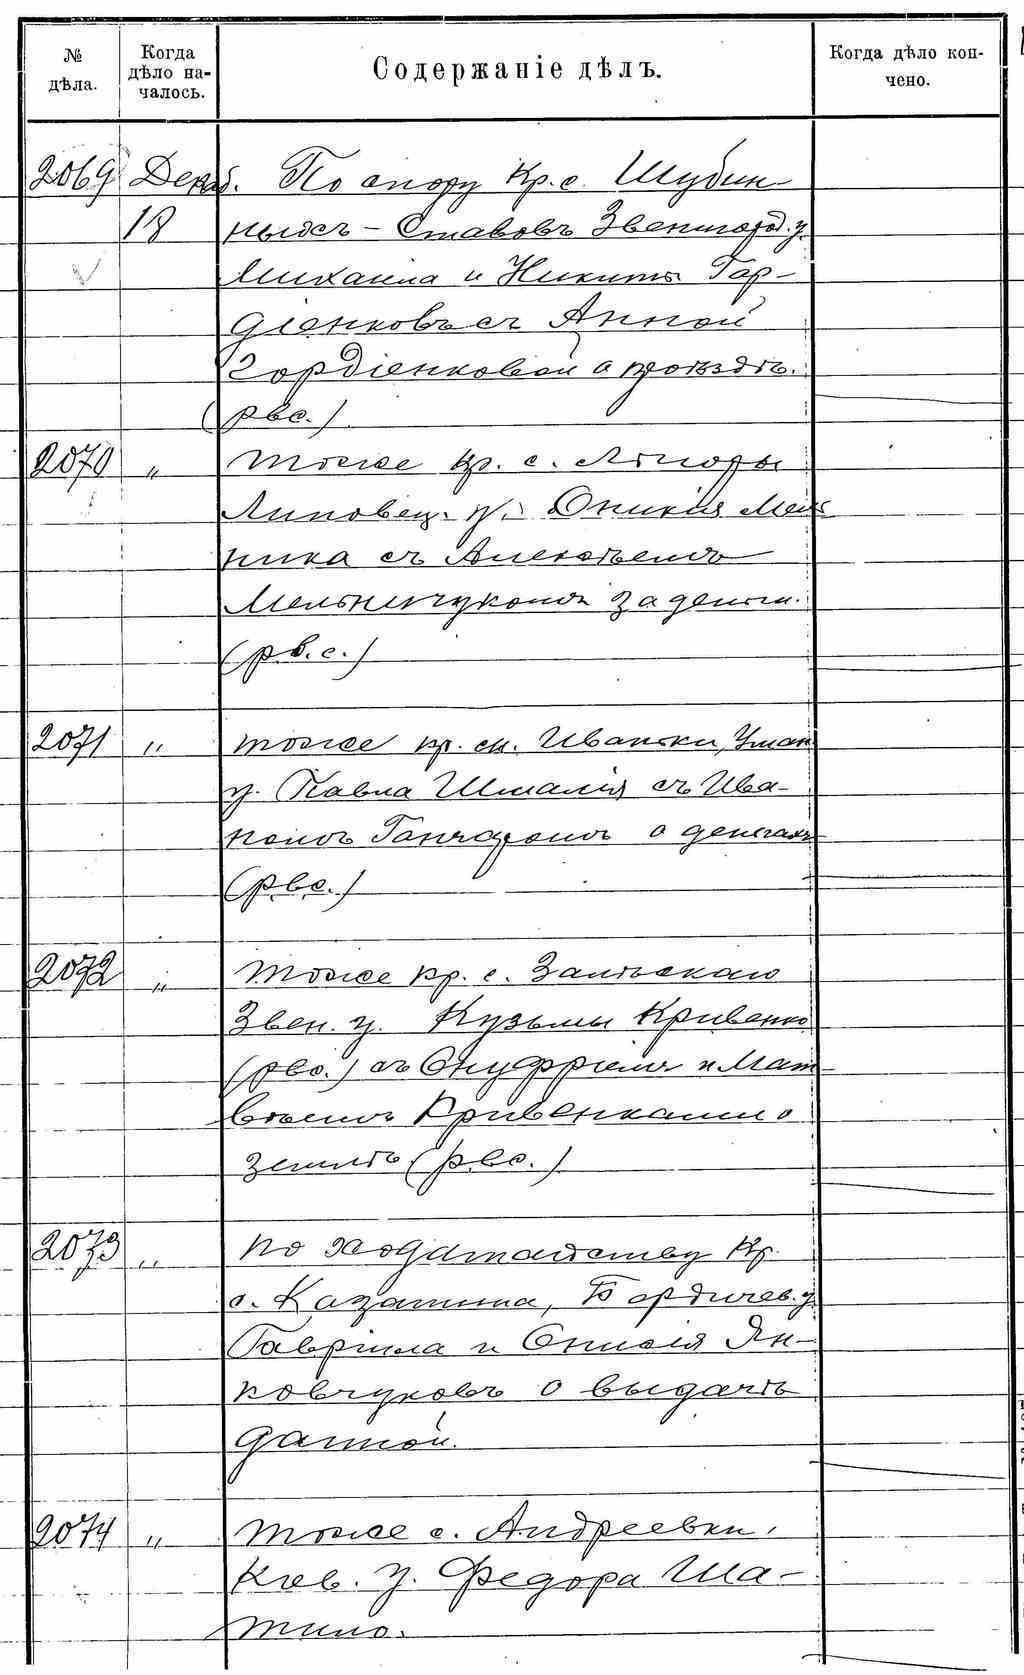 № дѣла.
Когда дѣло началось.
Содержаніе дѣлъ.
Когда дѣло кончено.
2069 Декаб. По спору Кр. с. Шубин-
18 ныхъ-Ставовъ Звенигород. у.
Михаила и Никиты Гор-
діенковъ съ Анной
Гордіенковой о проѣздѣ.
(рвс.)
2070 „ тоже кр. с.
Липовец. у. Оникія Мель
ника съ Алексѣемъ
Мельничукомъ за деньги.
(р.в.с.)
2071 „ тоже кр. см. Ивантки, Уман.
у. Павла Шмалія съ Ива-
номъ Ганчаромъ о деньгахъ
(рвс.)
2072 „ тоже кр. с. Залѣскаго
Звен. у. Кузьмы Кривенко
(рвс.) съ Онуфріемъ и Мат-
вѣемъ Кривенками о
землѣ (рвс.)
2073 „ по ходатайству Кр.
с. Казатина, Бердичев. у.
Гавріила и Онисія Ян-
ковчуковъ о выдачѣ
данной.
2074 „ тоже с. Андреевки,
Кіев. у. Федора Ша-
тило.